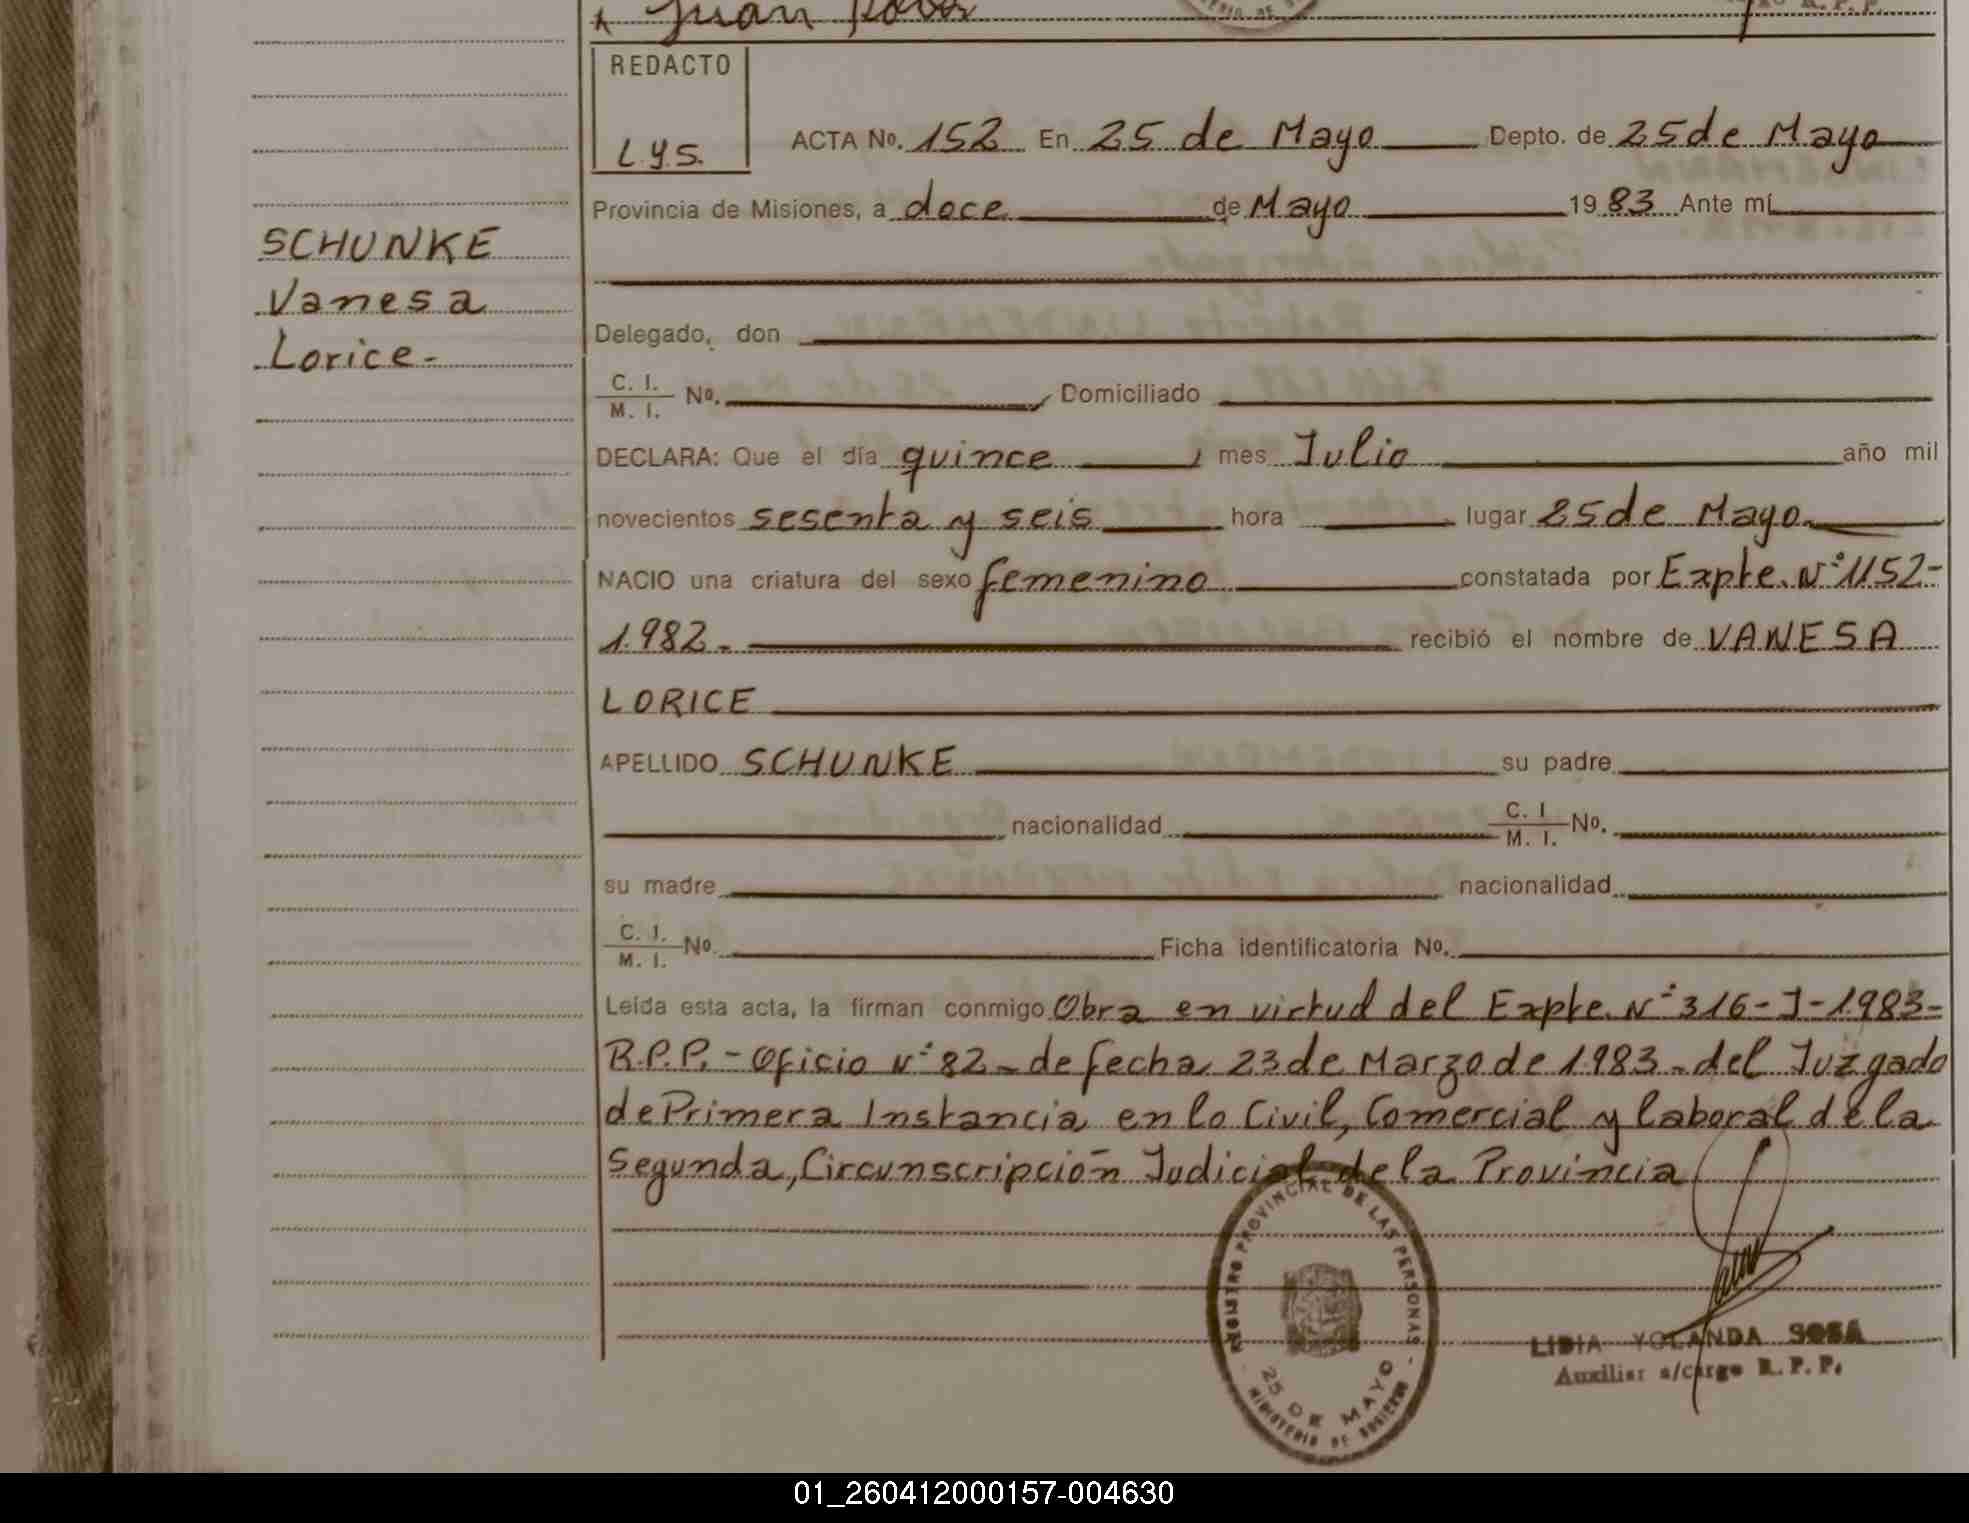 Juan
REDACTO
L.Y.S.
ACTA No. 152 En 25 de Mayo Depto. de 25 de Mayo
Provincia de Misiones, a doce de Mayo 1983 Ante mí
SCHUNKE
Vanesa
Lorice-
Delegado, don
C. I.
M. I. No. Domiciliado
DECLARA: Que el día quince, mes Julio año mil
novecientos sesenta y seis hora lugar 25 de Mayo
NACIO una criatura del sexo femenino constatada por Expte. N° 1152-
1.982.- recibió el nombre de VANESA
LORICE
APELLIDO SCHUNKE su padre
nacionalidad C. I
M. I. No.
su madre nacionalidad
C. I.
M. I. No. Ficha identificatoria No.
Leída esta acta, la firman conmigo Obra en virtud del Expte. N° 316-J-1.983-
R.P.P.- Oficio N° 82- de fecha 23 de Marzo de 1.983- del Juzgado
de Primera Instancia en lo Civil, Comercial y laboral de la
Segunda, Circunscripción Judicial de la Provincia
REGISTRO PROVINCIAL DE LAS PERSONAS
25 DE MAYO
MINISTERIO DE GOBIERNO
LIDIA YOLANDA SOSA
Auxiliar s/cargo R. P. P.
01_260412000157-004630